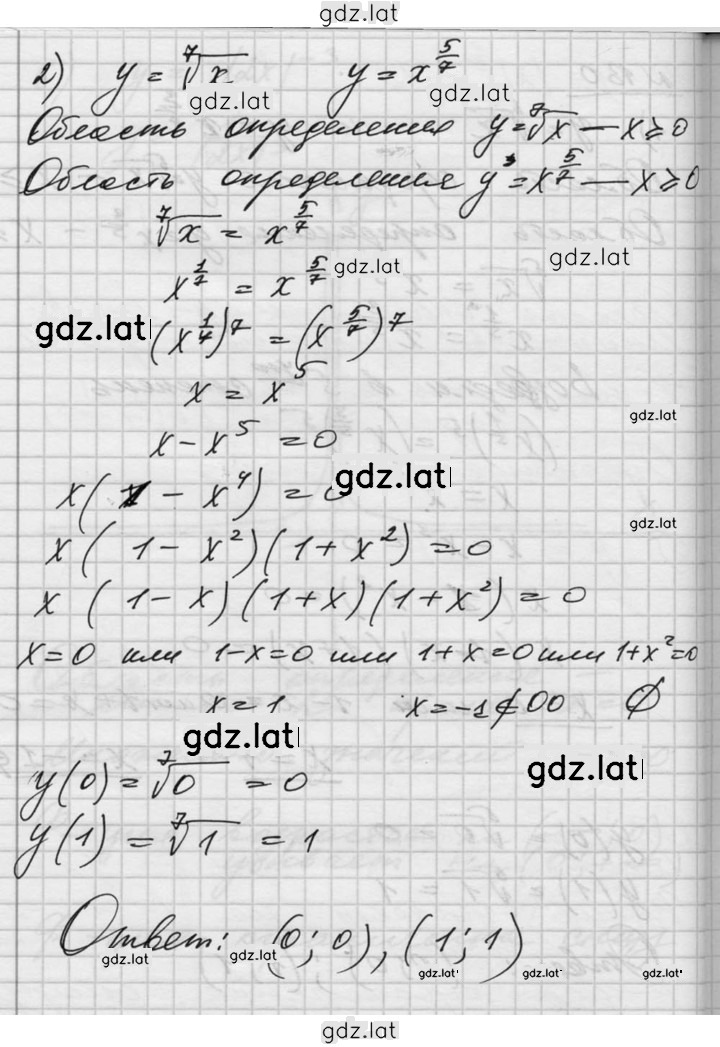 gdz.lat
2) y = ⁷√x   y = x^(5/7)
gdz.lat gdz.lat
Область определения y = ⁷√x — x ≥ 0
Область определения y = x^(5/7) — x ≥ 0
⁷√x = x^(5/7)
gdz.lat
x^(1/7) = x^(5/7) gdz.lat
gdz.lat (x^(1/7))^7 = (x^(5/7))^7
x = x^5
gdz.lat
x - x^5 = 0
gdz.lat
x(1 - x^4) = 0
gdz.lat
x(1 - x^2)(1 + x^2) = 0
x(1 - x)(1 + x)(1 + x^2) = 0
x = 0 или 1 - x = 0 или 1 + x = 0 или 1 + x^2 = 0
x = 1   x = -1 ∉ ОО   ∅
gdz.lat
gdz.lat
y(0) = ⁷√0 = 0
y(1) = ⁷√1 = 1
Ответ: (0; 0), (1; 1)
gdz.lat gdz.lat gdz.lat gdz.lat gdz.lat
gdz.lat